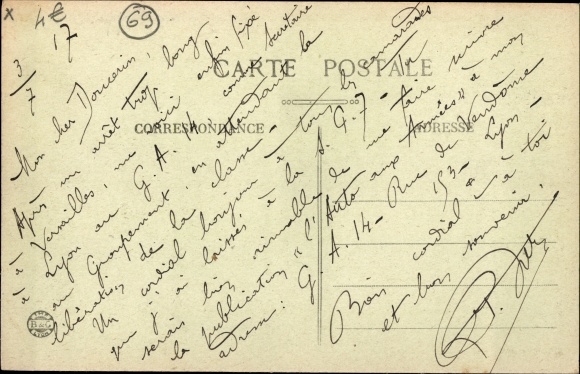 x 4€ 69
CARTE POSTALE
CORRESPONDANCE
ADRESSE
3/7 17
Mon cher Doucerin,
Après un arrêt trop long
à Versailles, me voici enfin fixé
à Lyon au G.A. 14 comme secrétaire
au Groupement, en attendant la
libération de la classe.
Un cordial bonjour à tous les camarades
que j'ai laissés à la S. G. 7 - Tu
serais bien aimable de me faire suivre
la publication "l'Auto aux Armées" à mon
adresse: G. A. 14 - Rue de Vendôme
153 - Lyon -
Bien cordial à toi
et bon souvenir.
B&G
LYON